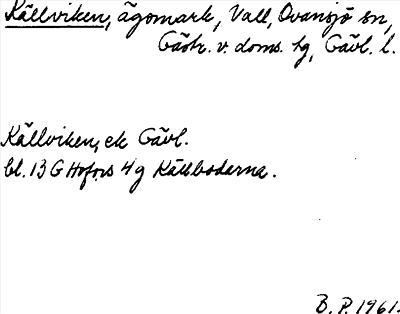 Källviken, ägomark, Vall, Ovansjö sn,
Gästr. v. doms. hg, Gävl. l.
Källviken, ek Gävl.
bl. 13 G Hofors 4 g Källboderna.
B. P. 1961.